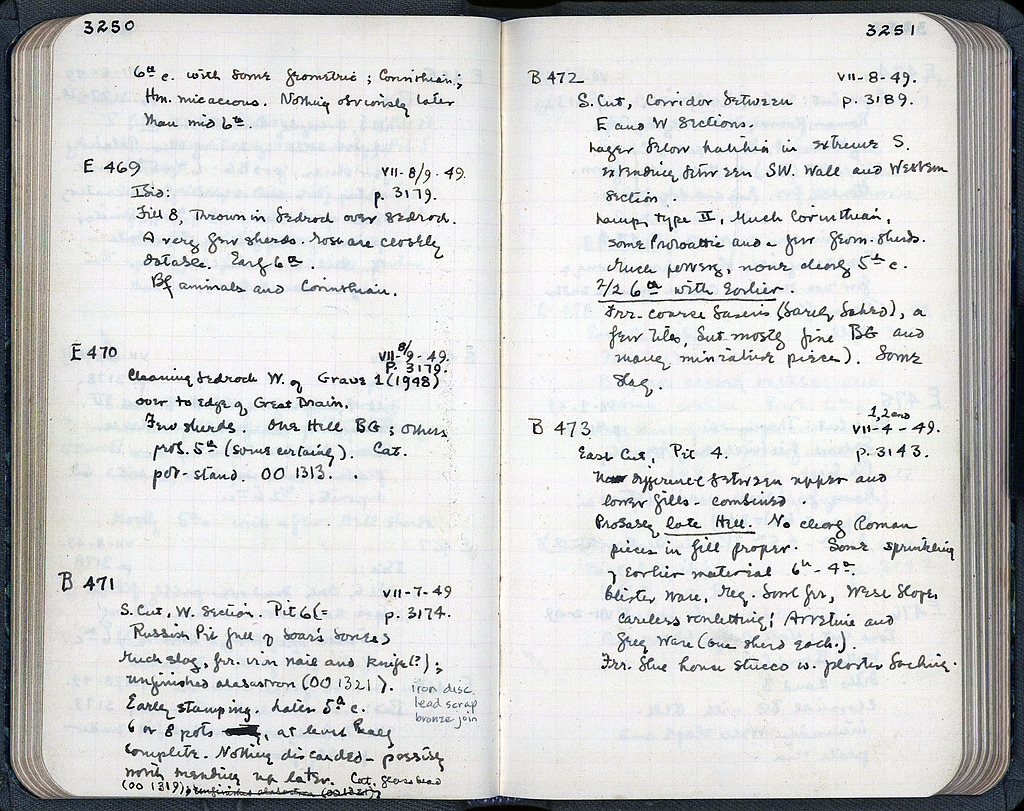 3250
6th c. with some Geometric; Corinthian;
Hm. micaceous. Nothing obviously later
than mid 6th.
E 469 VII-8/9-49.
Ibid: p. 3179.
Fill B, thrown in bedrock over bedrock.
A very few sherds. Most are closely
datable. Early 6th.
Bf animals and Corinthian.
E 470 VII-8/9-49.
p. 3179.
Cleaning bedrock W. of Grave 1 (1948)
over to edge of Great Drain.
Few sherds. One Hell BG; others
prob. 5th (some certainly). Cat.
pot-stand. OO 1313.
B 471 VII-7-49
S. Cut, W. Section, Pit 6 (= p. 3174.
Rubbish Pit full of boar's bones
Much slag, frr. iron nail and knife(?);
unfinished alabastron (OO 1321).
iron disc
lead scrap
bronze join
Early stamping. Later 5th c.
6 or 8 pots, at least nearly
complete. Nothing discarded - possibly
worth mending up later. Cat. glass bead
(OO 1319), unfinished alabastron (OO 1321),
3251
B 472 VII-8-49.
S. Cut, Corridor between p. 3189.
E and W Sections.
Layer below hatching in extreme S.
extending between SW. Wall and Western
Section.
Lamp, type II, Much Corinthian,
some Protoattic and a few Geom. sherds.
Much pottery, none clearly 5th c.
2/2 6th with Earlier.
Frr. coarse basins (barely baked), a
few tiles, but mostly fine BG and
many miniature pieces). Some
slag.
B 473 1, 2 and
VII-4-49.
East Cut, Pit 4. p. 3143.
No difference between upper and
lower fills - combined
Probably late Hell. No clearly Roman
pieces in fill proper. Some sprinkling
of Earlier material 6th - 4th.
Blister Ware, Meg. Bowl frr, West Slope,
careless rouletting; Arretine and
Grey Ware (one sherd each).
Frr. blue house stucco w. plaster backing.